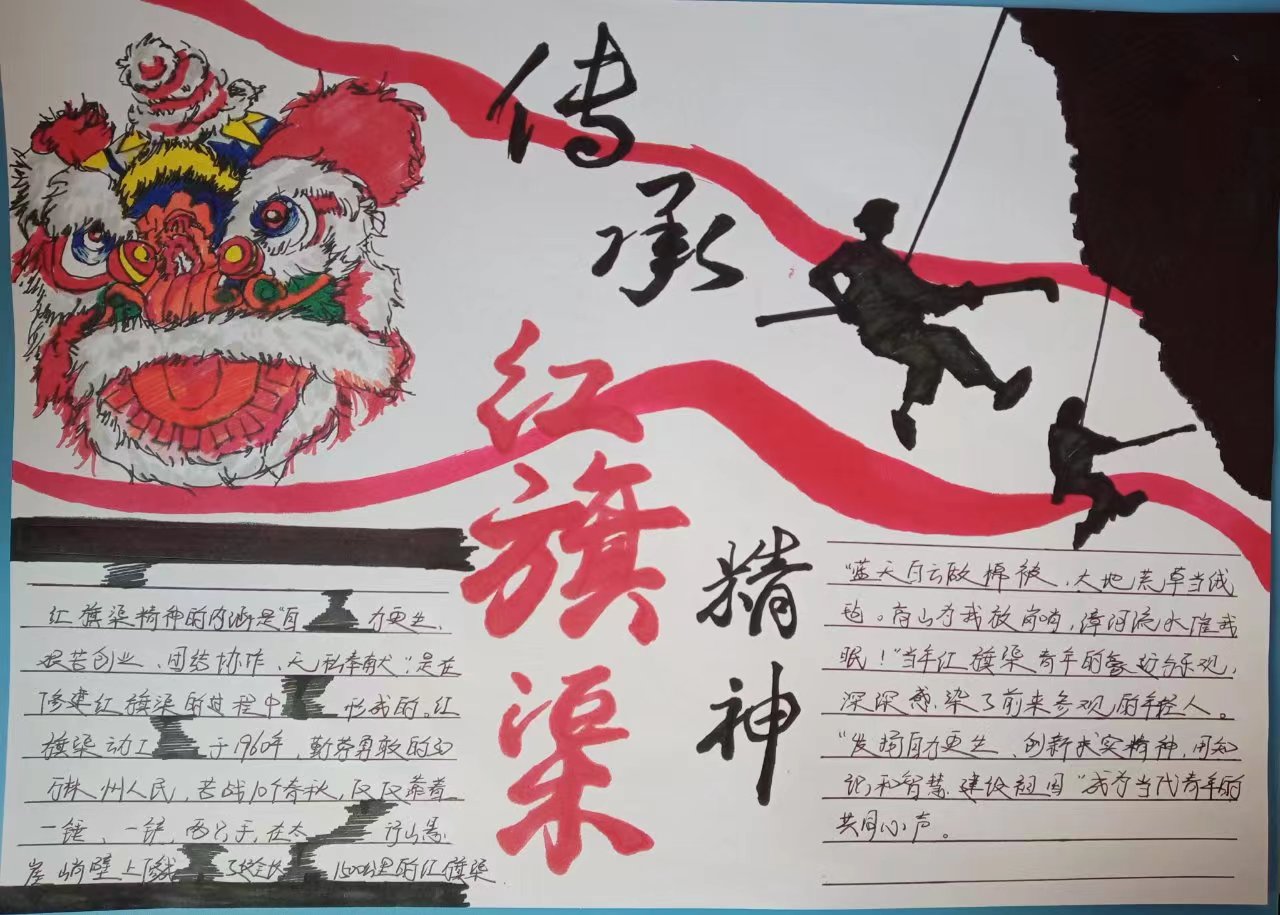 传承
红旗渠
精神
红旗渠精神的内涵是"自力更生、
艰苦创业、团结协作、无私奉献"。是在
修建红旗渠的过程中形成的。红
旗渠动工于1960年,勤劳勇敢的30
万林州人民,苦战10个春秋,仅仅靠着
一锤、一铲、两只手,在太行山悬
崖峭壁上修成了 1500公里的红旗渠
"蓝天白云做棉被,大地荒草当绒
毡。高山为我放岗哨,漳河流水催我
眠!"当年红旗渠青年的豪迈与乐观,
深深感染了前来参观的年轻人。
"发扬自力更生、创新求实精神,用知
识和智慧建设祖国"成为当代青年的
共同心声。